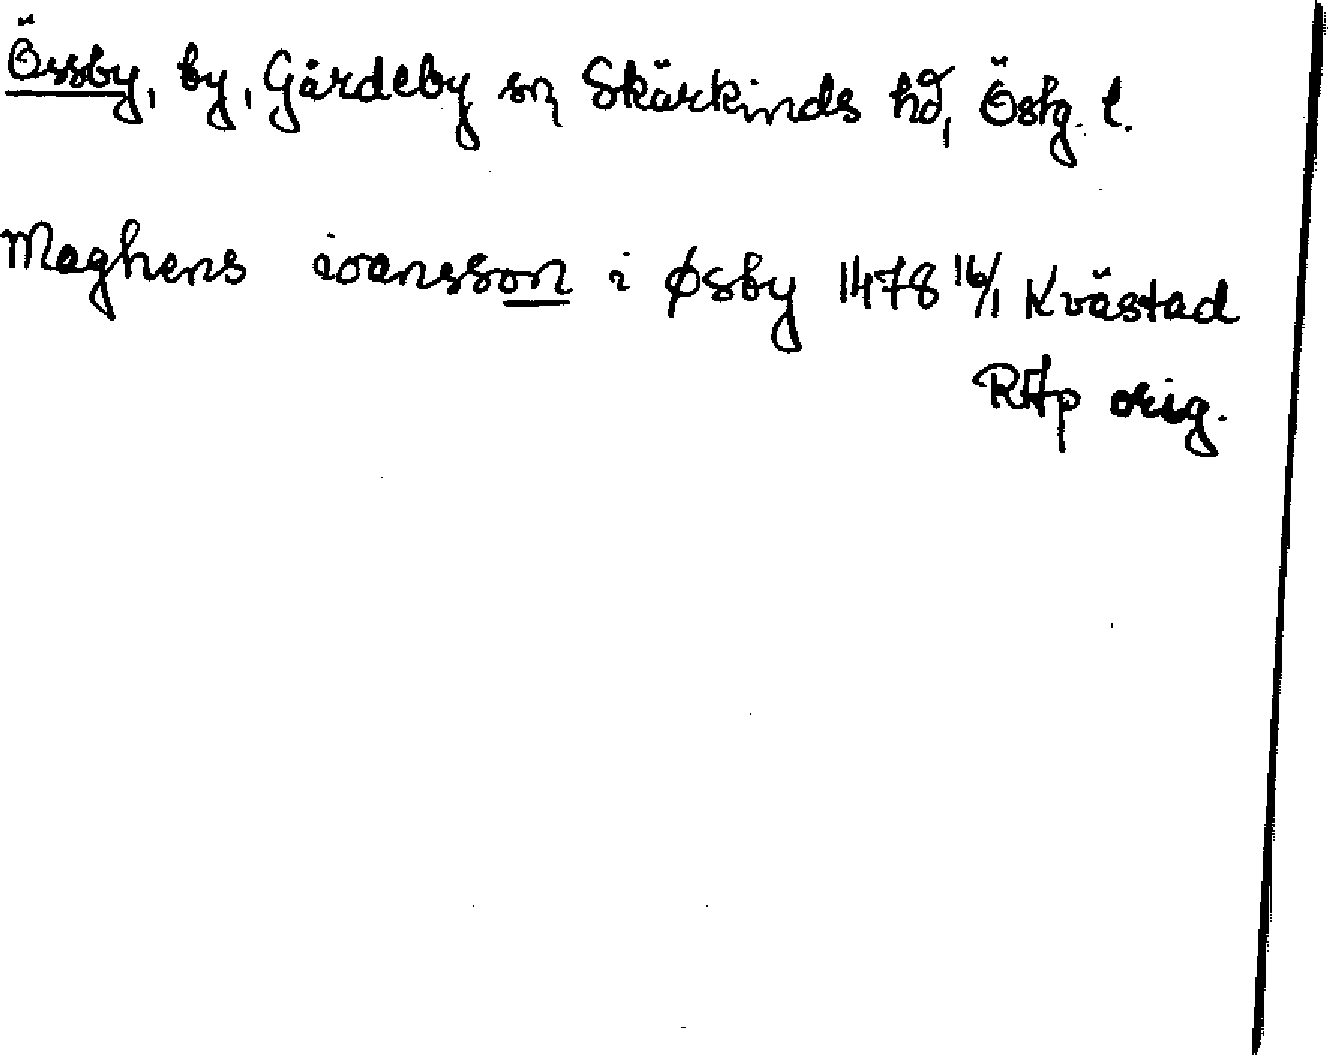 Össby, by, Gårdeby sn, Skärkinds hd, Östg. l.
Maghens ivansson i Øsby 1478 16/1 Kvästad
RAp orig.